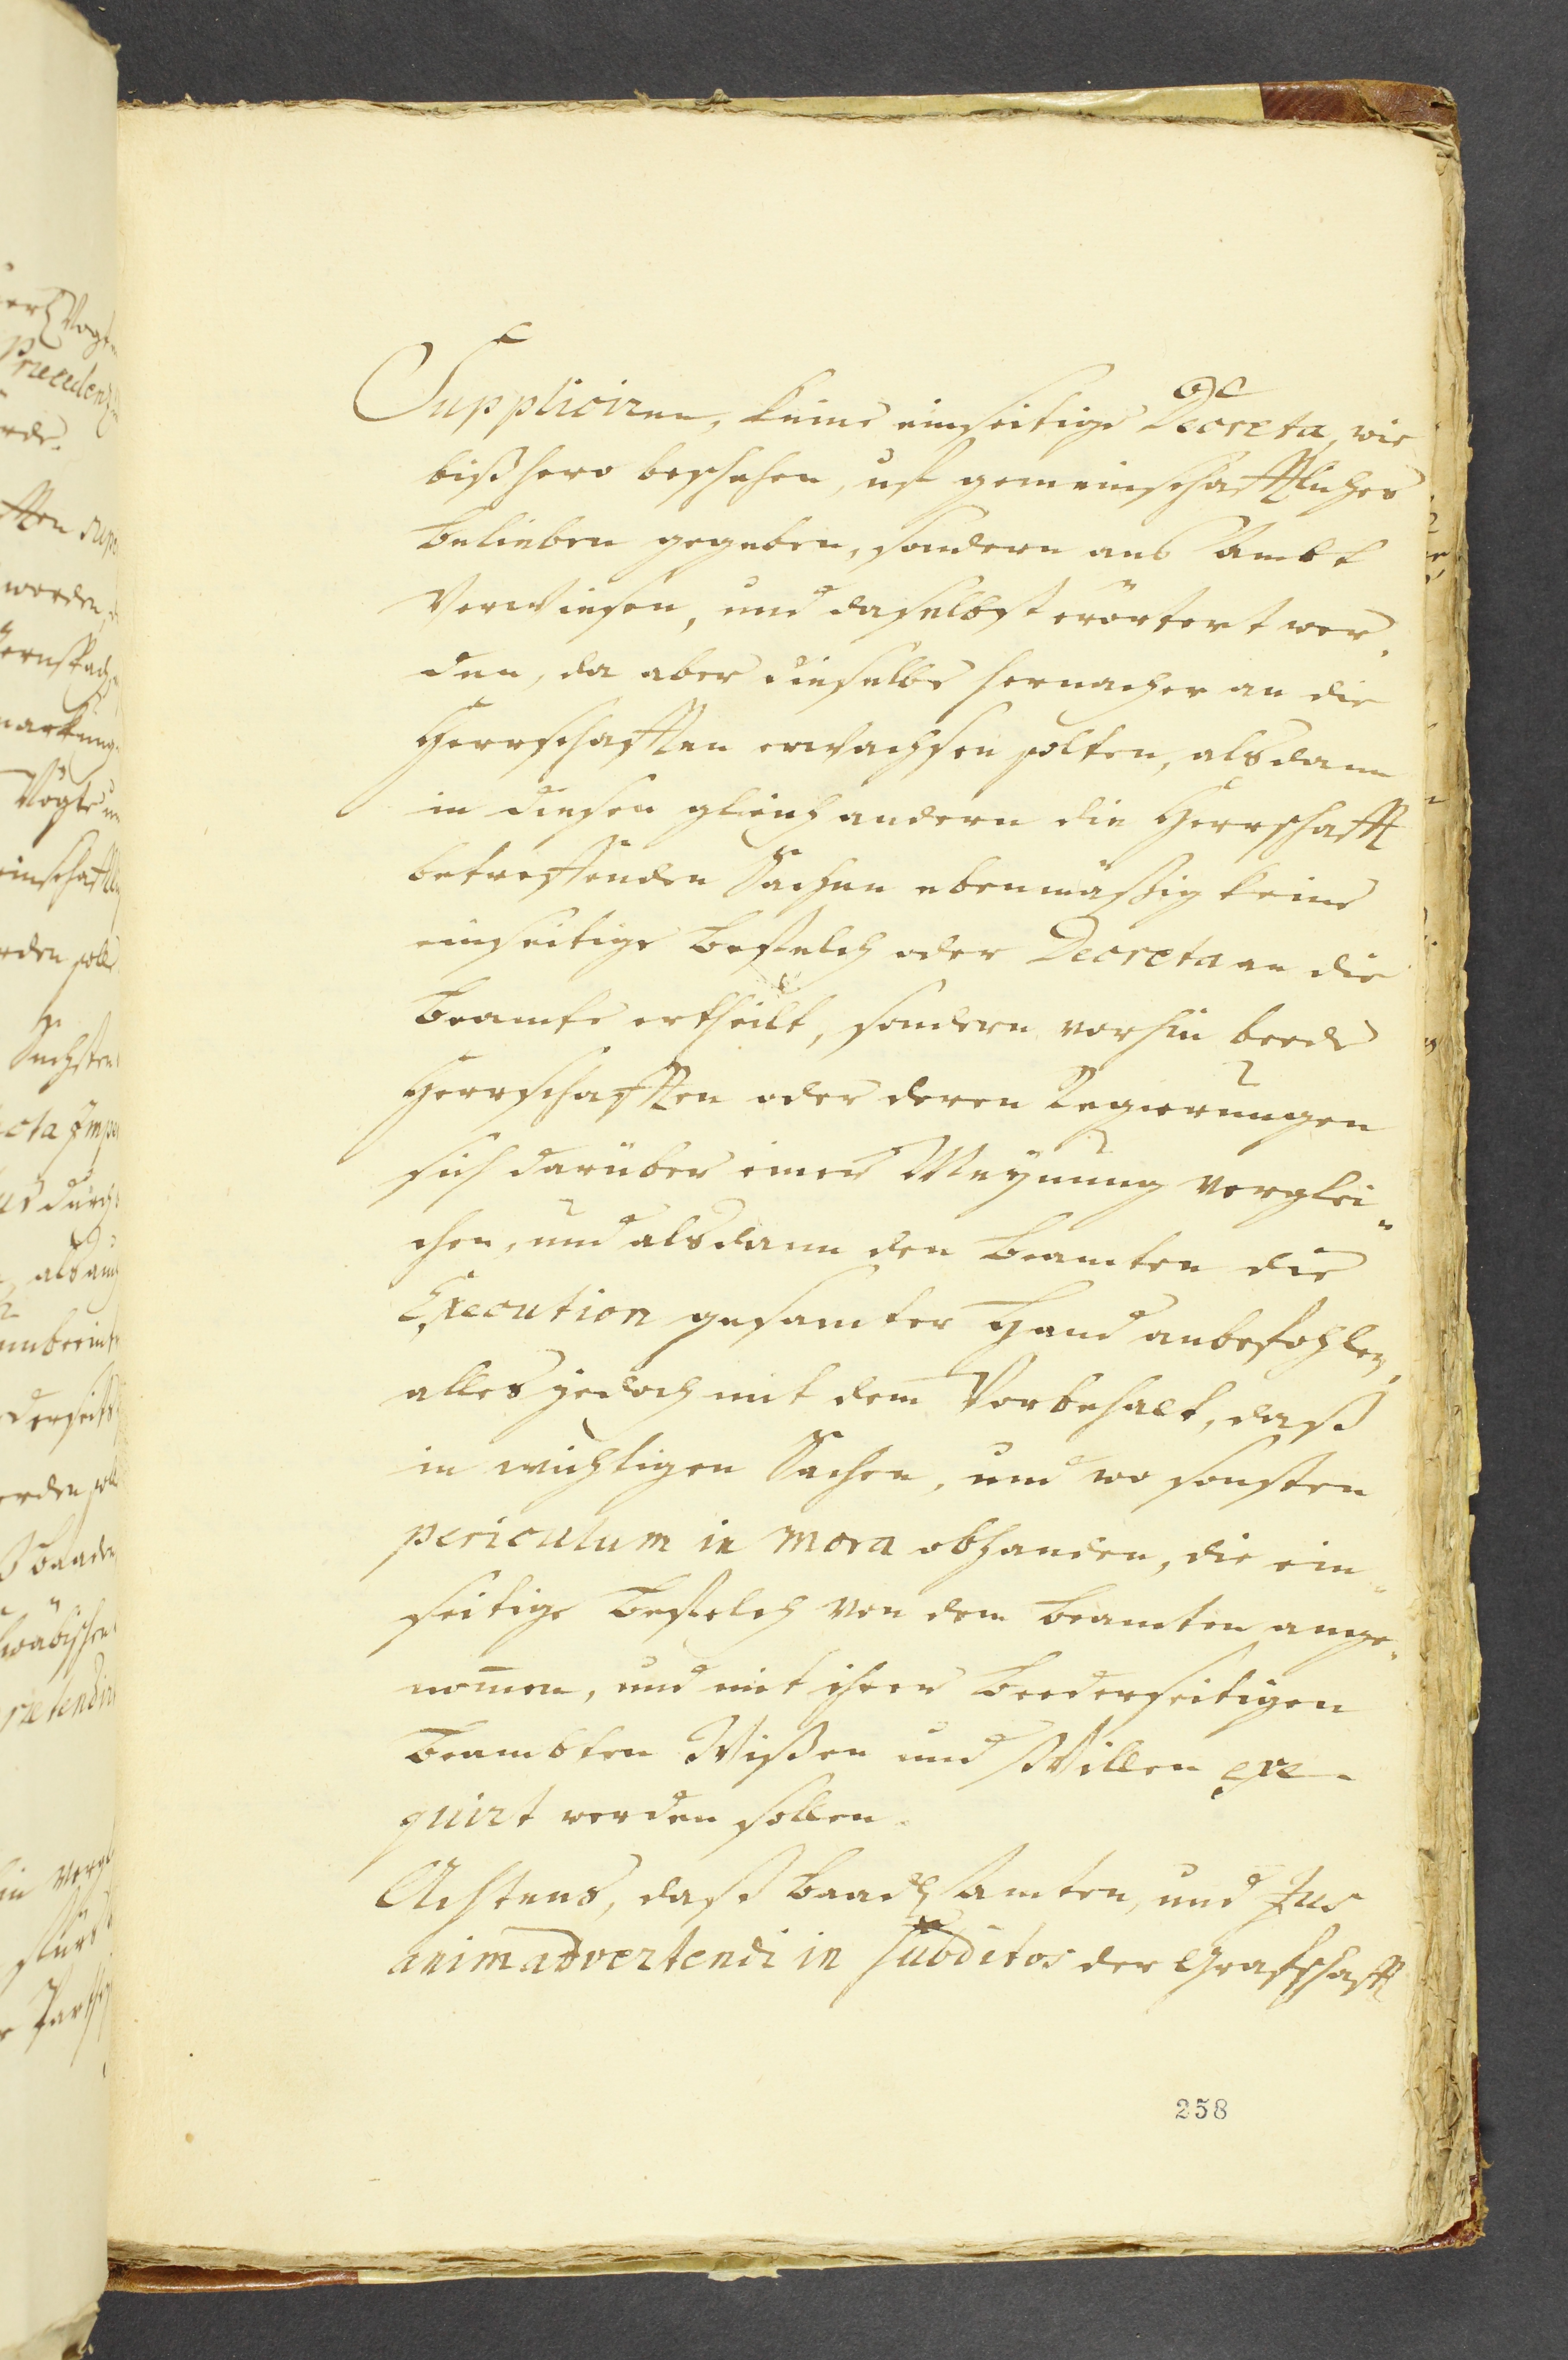 Suppliciren, keine einseitige Decreta, wie
bißhero beschehen, uf gemeinschafftliches
belieben gegeben, sondern ans Ambt
Verwiesen, und daselbst erörtert wer.
den, da aber dieselbe hernacher an die
Herrschafften erwachsen solten, alsdann
in diesen gleich andern die Herrschafft
betreffenden Sachen ebenmäßig keine
einseitige Befelch oder Decreta an die
Beamte ertheilt, sondern vorhin beede
Herrschafften oder deren Regierungen
sich darüber einer Meynung verglei"
chen, und alsdann den Beamten die
Execution gesamter Hand anbefohlen,
alles jedoch mit dem Vorbehalt, daß
in wichtigen Sachen, und wo sonsten
periculum in mora obhanden, die ein"
seitige Befelch von dem Beamten ange"
nom̄en, und mit ihrer beederseitigen
Beambten Wißen und Willen exe-
quirt werden sollen.
Achtens, daß Baad. Beamten, und Jus
animadvertendi in subditos der Grafschafft
258